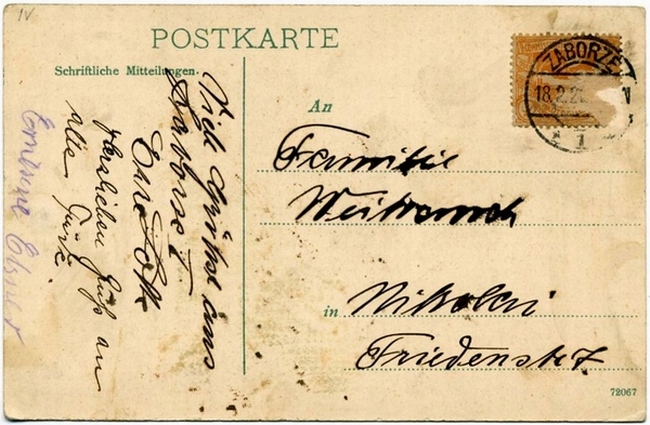 IV
POSTKARTE
Schriftliche Mitteilungen.
Viele Grüße aus
Zaborze
Herzlichen Gruß an
alle
An
Familie
in Nikolai
Friedenstr 7
ZABORZE
18.2.2
1
72067